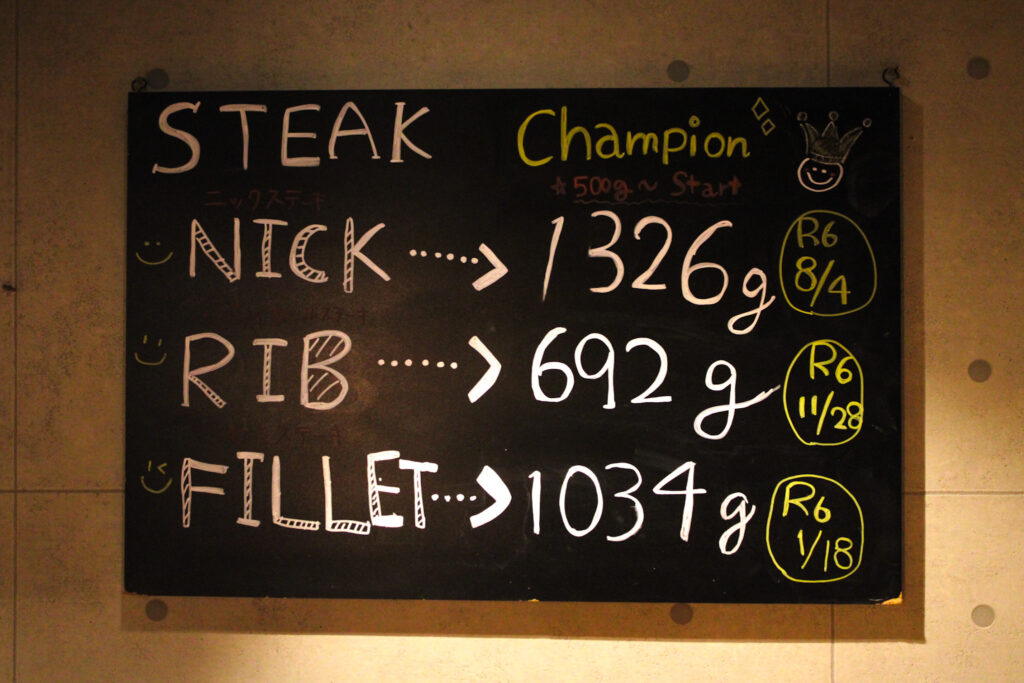 STEAK Champion
☆500g～ Start
ニックステーキ
NICK ·····> 1326g R6 8/4
ステーキ
RIB ······> 692g R6 11/28
ステーキ
FILLET ····> 1034g R6 1/18